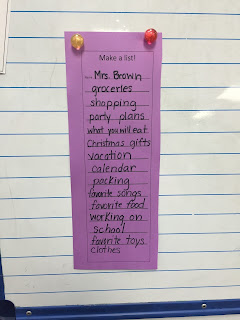 Make a list!
Mrs. Brown
groceries
shopping
party plans
what you will eat
Christmas gifts
vacation
calendar
packing
favorite songs
favorite food
working on
school
favorite toys
clothes